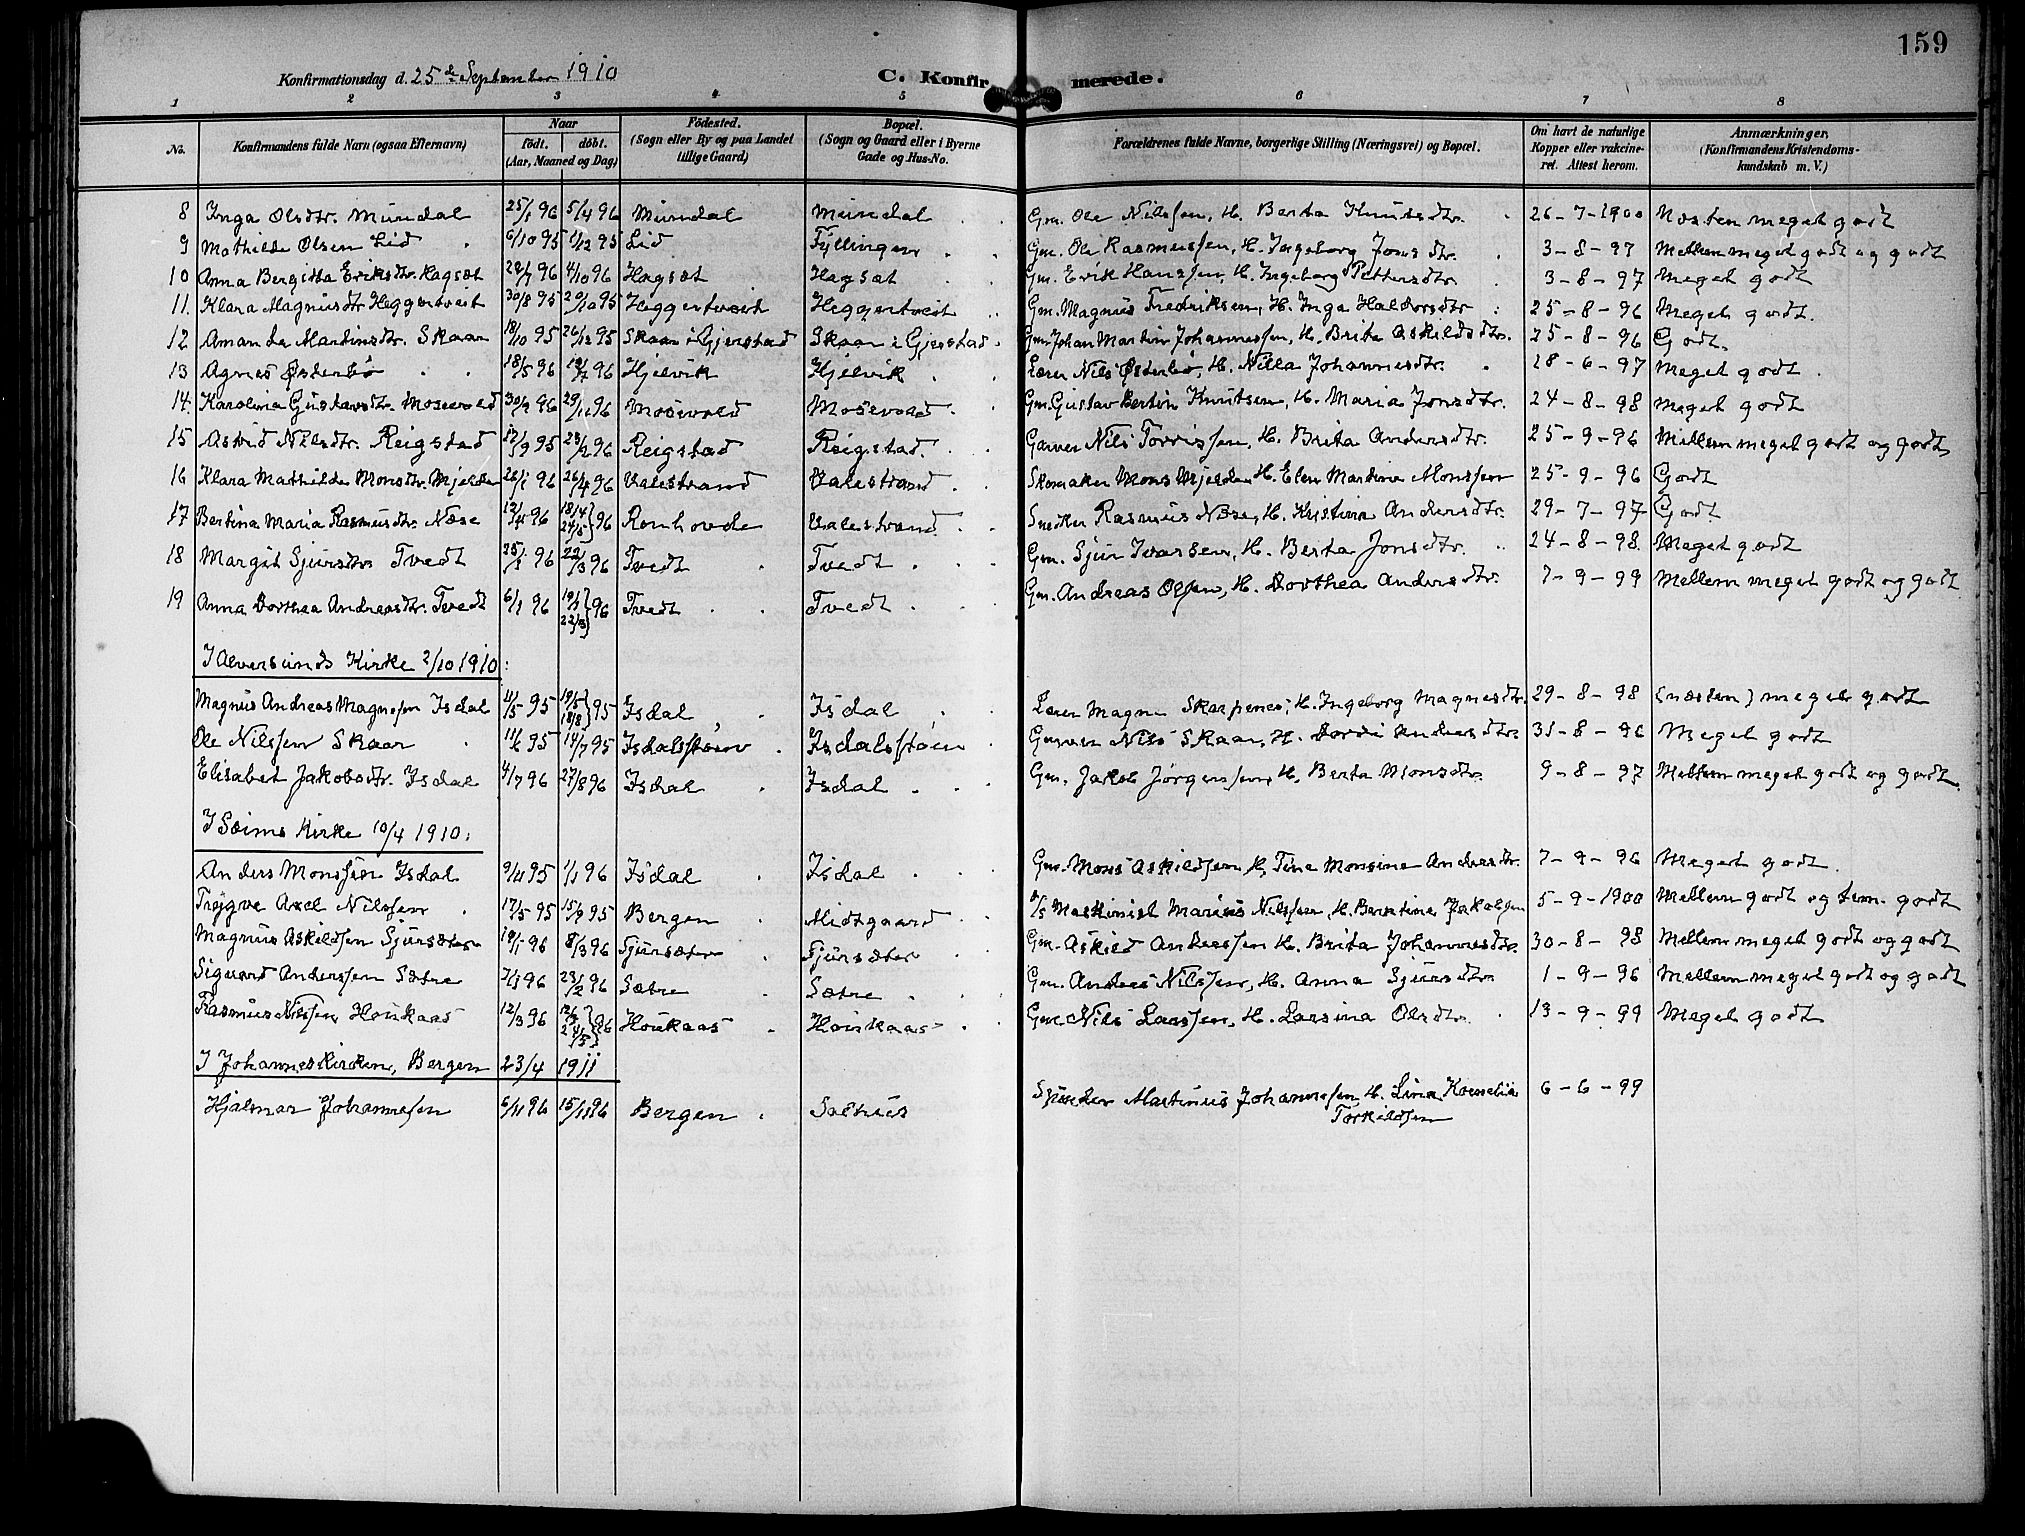 159
Konfirmationsdag d. 25de September 1910 C. Konfirmerede.
1 2 3 4 5 6 7 8
No. Konfirmandens fulde Navn (ogsaa Efternavn) Naar født. døbt. (Aar, Maaned og Dag) Fødested. (Sogn eller By og paa Landet tillige Gaard) Bopæl. (Sogn og Gaard eller i Byerne Gade og Hus-No. Forældrenes fulde Navne, borgerlige Stilling (Næringsvei) og Bopæl. Om havt de naturlige Kopper eller vakcineret. Attest herom. Anmærkninger. (Konfirmandens Kristendomskundskab m. V.)
8 Inga Olsdtr. Mundal 25/1 96 5/4 96 Mundal Mundal Gm. Ole Nilssen, H. Berta Knutsdtr. 26-7-1900 Næsten meget godt
9 Mathilde Olsen Lid 6/10 95 1/12 95 Lid Fyllingen Gm. Ole Rasmussen, H. Ingeborg Jons dtr. 3-8-97 Mellem meget godt og godt
10 Anna Bergitta Eriksdtr. Hagsæt 29/7 96 4/10 96 Hagsæt Hagsæt Gm. Erik Hanssen, H. Ingeborg Pettersdtr. 3-8-97 Meget godt
11. Klara Magnusdtr. Heggertveit 30/8 95 20/10 95 Heggertveit Heggertveit Gm. Magnus Fredriksen, H. Inga Haldorsdtr 25-8-96 Meget godt.
12 Amanda Martinsdtr. Skaar 18/10 95 26/12 95 Skaar i Gjerstad Skaar i Gjerstad Gm. Johan Martin Johannessen, H. Brita Askildsdtr. 25-8-96 Godt.
13 Agnes Østerbø 18/5 96 19/7 96 Hjelvik Hjelvik Lærer Nils Østerbø, H. Nilla Johannesdtr. 28-6-97 Meget godt
14. Karolina Gustavsdtr. Mosevold 30/9 96 29/11 96 Mosevold Mosevold Gm. Gustav Bertin Knutsen, H. Maria Jonsdtr. 24-8-98 Meget godt
15 Astrid Nilsdtr. Reigstad 12/9 95 23/2 96 Reigstad Reigstad Garver Nils Torrissen, H. Brita Andersdtr. 25-9-96 Mellem meget godt og godt
16 Klara Mathilde Monsdtr. Mjelde 26/1 96 26/4 96 Valestrand Valestrand Skomaker Mons Mjelde, H. Elen Martine Monssen 25-9-96 Godt
17 Bertina Maria Rasmusdtr. Næse 12/4 96 18/4 24/5 } 96 Ronhovde Valestrand Snedker Rasmus Næse, H. Kristina Andersdtr. 29-7-97 Godt
18 Margit Sjursdtr. Tvedt 25/1 96 22/3 96 Tvedt Tvedt Gm. Sjur Ivarsen, H. Berta Jonsdtr. 24-8-98 Meget godt
19 Anna Dorthea Andreasdtr. Tvedt 6/1 96 19/1 22/3 } 96 Tvedt Tvedt Gm. Andreas Olsen, H. Dorthea Andersdtr. 7-9-99 Mellem meget godt og godt
I Alversunds Kirke 2/10 1910:
Magnus Andreas Magnesen Isdal 11/5 95 19/5 18/8 } 95 Isdal Isdal Lærer Magne Skarpenes, H. Ingeborg Magnesdtr. 29-8-98 (næsten) meget godt
Ole Nilssen Skaar 11/6 95 14/7 95 Isdalsstøen Isdalsstøen Garver Nils Skaar, H. Dordi Andersdtr. 31-8-96 Meget godt
Elisabet Jakobsdtr. Isdal 4/7 96 27/8 96 Isdal Isdal Gm. Jakob Jørgenssen, H. Berta Monsdtr. 9-8-97 Mellem meget godt og godt
I Seims Kirke 10/4 1910:
Anders Monssen Isdal 9/11 95 1/1 96 Isdal Isdal Gm. Mons Askildssen, H. Tine Monsine Andersdtr. 7-9-96 Meget godt
Trygve Axel Nilssen 17/5 95 15/9 95 Bergen Midtgaard Maskinist Marius Nilssen, H. Berntine Jakobsen 5-9-1900 Mellem godt og tem. godt
Magnus Askildsen Sjursæter 19/1 96 8/3 96 Sjursæter Sjursæter Gm. Askild Anderssen H. Brita Johannesdtr. 30-8-98 Mellem meget godt og godt
Sigurd Anderssen Sætre 7/1 96 23/2 96 Sætre Sætre Gm. Anders Nilssen, H. Anna Sjursdtr. 1-9-96 Mellem meget godt og godt
Rasmus Nilssen Houkaas 12/3 96 96 Houkaas Houkaas Gm. Nils Larssen, H. Larsina Olsdtr. 13-9-99 Meget godt
I Johanneskirken, Bergen 23/4 1911
Hjalmar Johannesen 6/11 96 15/11 96 Bergen Salhus Martinus Johannessen, H. Lina Kornelia 6-6-99
Torkildsen